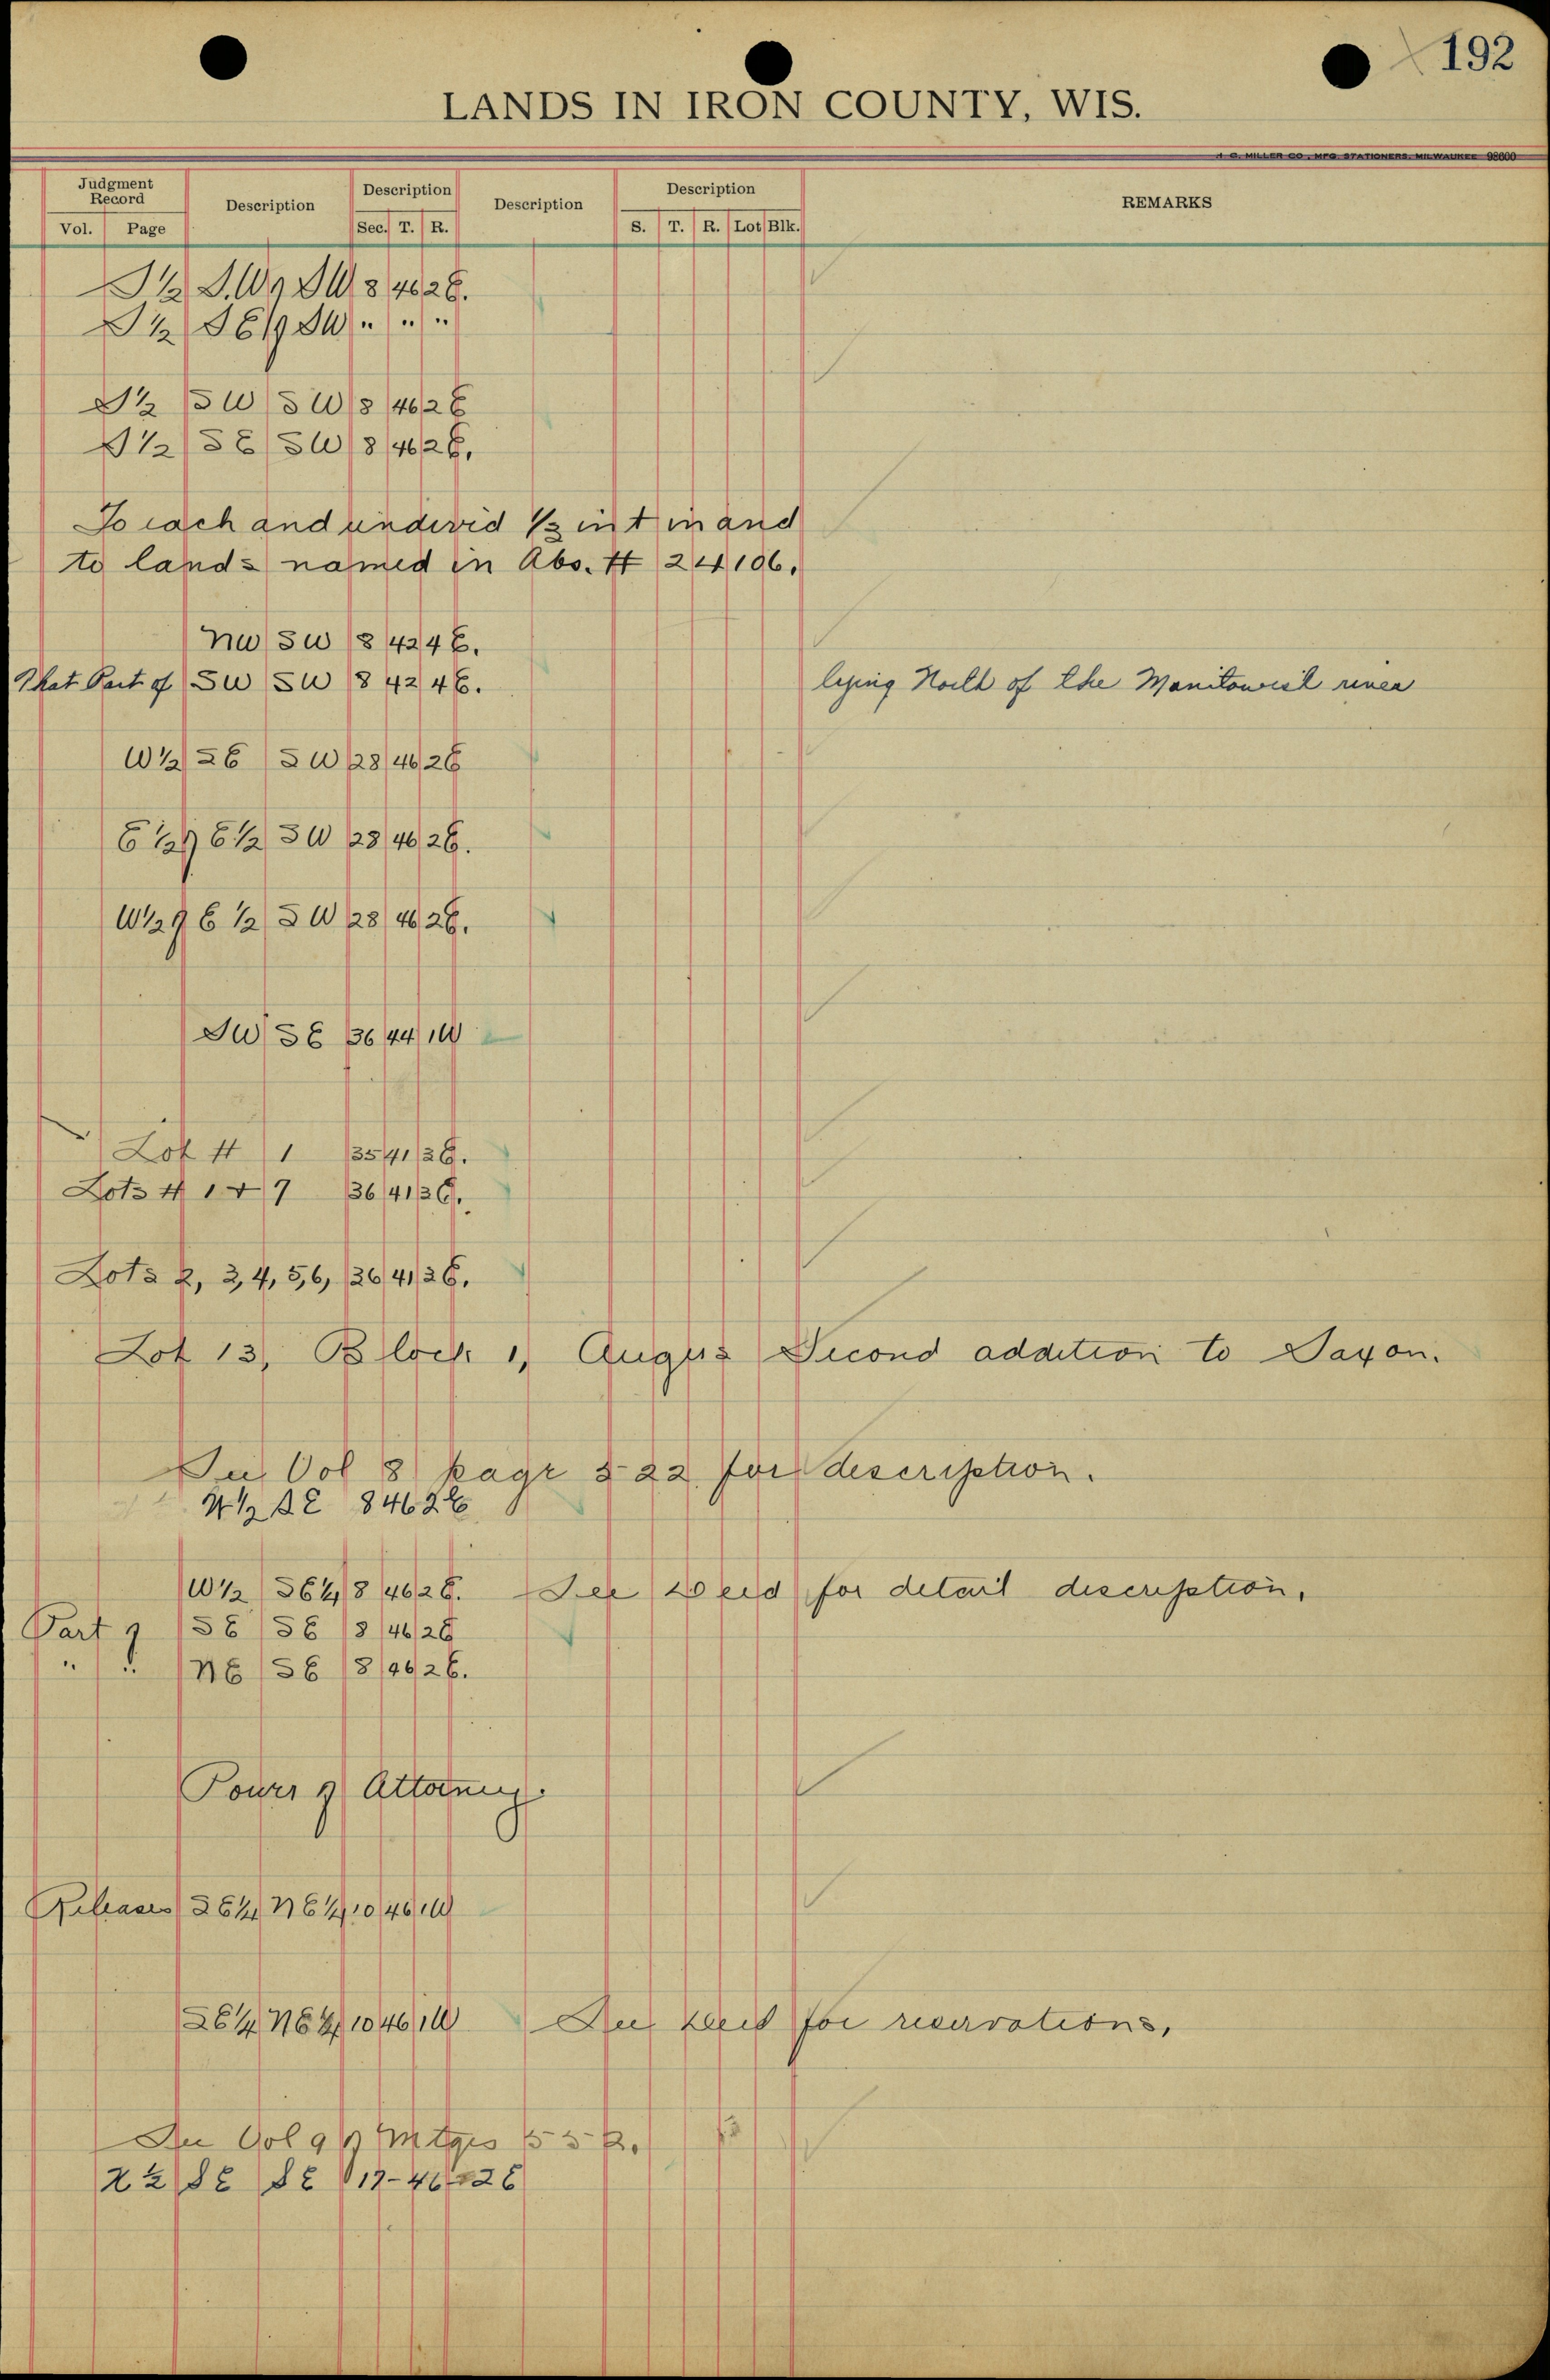 192
LANDS IN IRON COUNTY, WIS.
H. G. MILLER CO., MFG. STATIONERS, MILWAUKEE 98600
Judgment Record Description Description Description Description REMARKS
Vol. Page Sec. T. R. S. T. R. Lot Blk.
S½ S.W of SW 8 46 2E.
S½ SE of SW " " "
S½ SW SW 8 46 2E
S½ SE SW 8 46 2E.
To each and undivid ⅓ int in and
to lands named in Abs. # 24106.
NW SW 8 42 4E.
That Part of SW SW 8 42 4E. lying North of the Manitowish river
W½ SE SW 28 46 2E
E½ of E½ SW 28 46 2E.
W½ of E½ SW 28 46 2E.
SW SE 36 44 1W
Lot # 1 35 41 3E.
Lots # 1 + 7 36 41 3E.
Lots 2, 3, 4, 5, 6, 36 41 3E.
Lot 13, Block 1, Angus Second addition to Saxon.
See Vol 8 page 522 for description.
N½ SE 8 46 2E
W½ SE¼ 8 46 2E. See Deed for detail description.
Part of SE SE 8 46 2E
" " NE SE 8 46 2E.
Power of Attorney.
Releases SE¼ NE¼ 10 46 1W
SE¼ NE¼ 10 46 1W See Deed for reservations,
See Vol 9 of Mtges 552.
N½ SE SE 17-46-2E